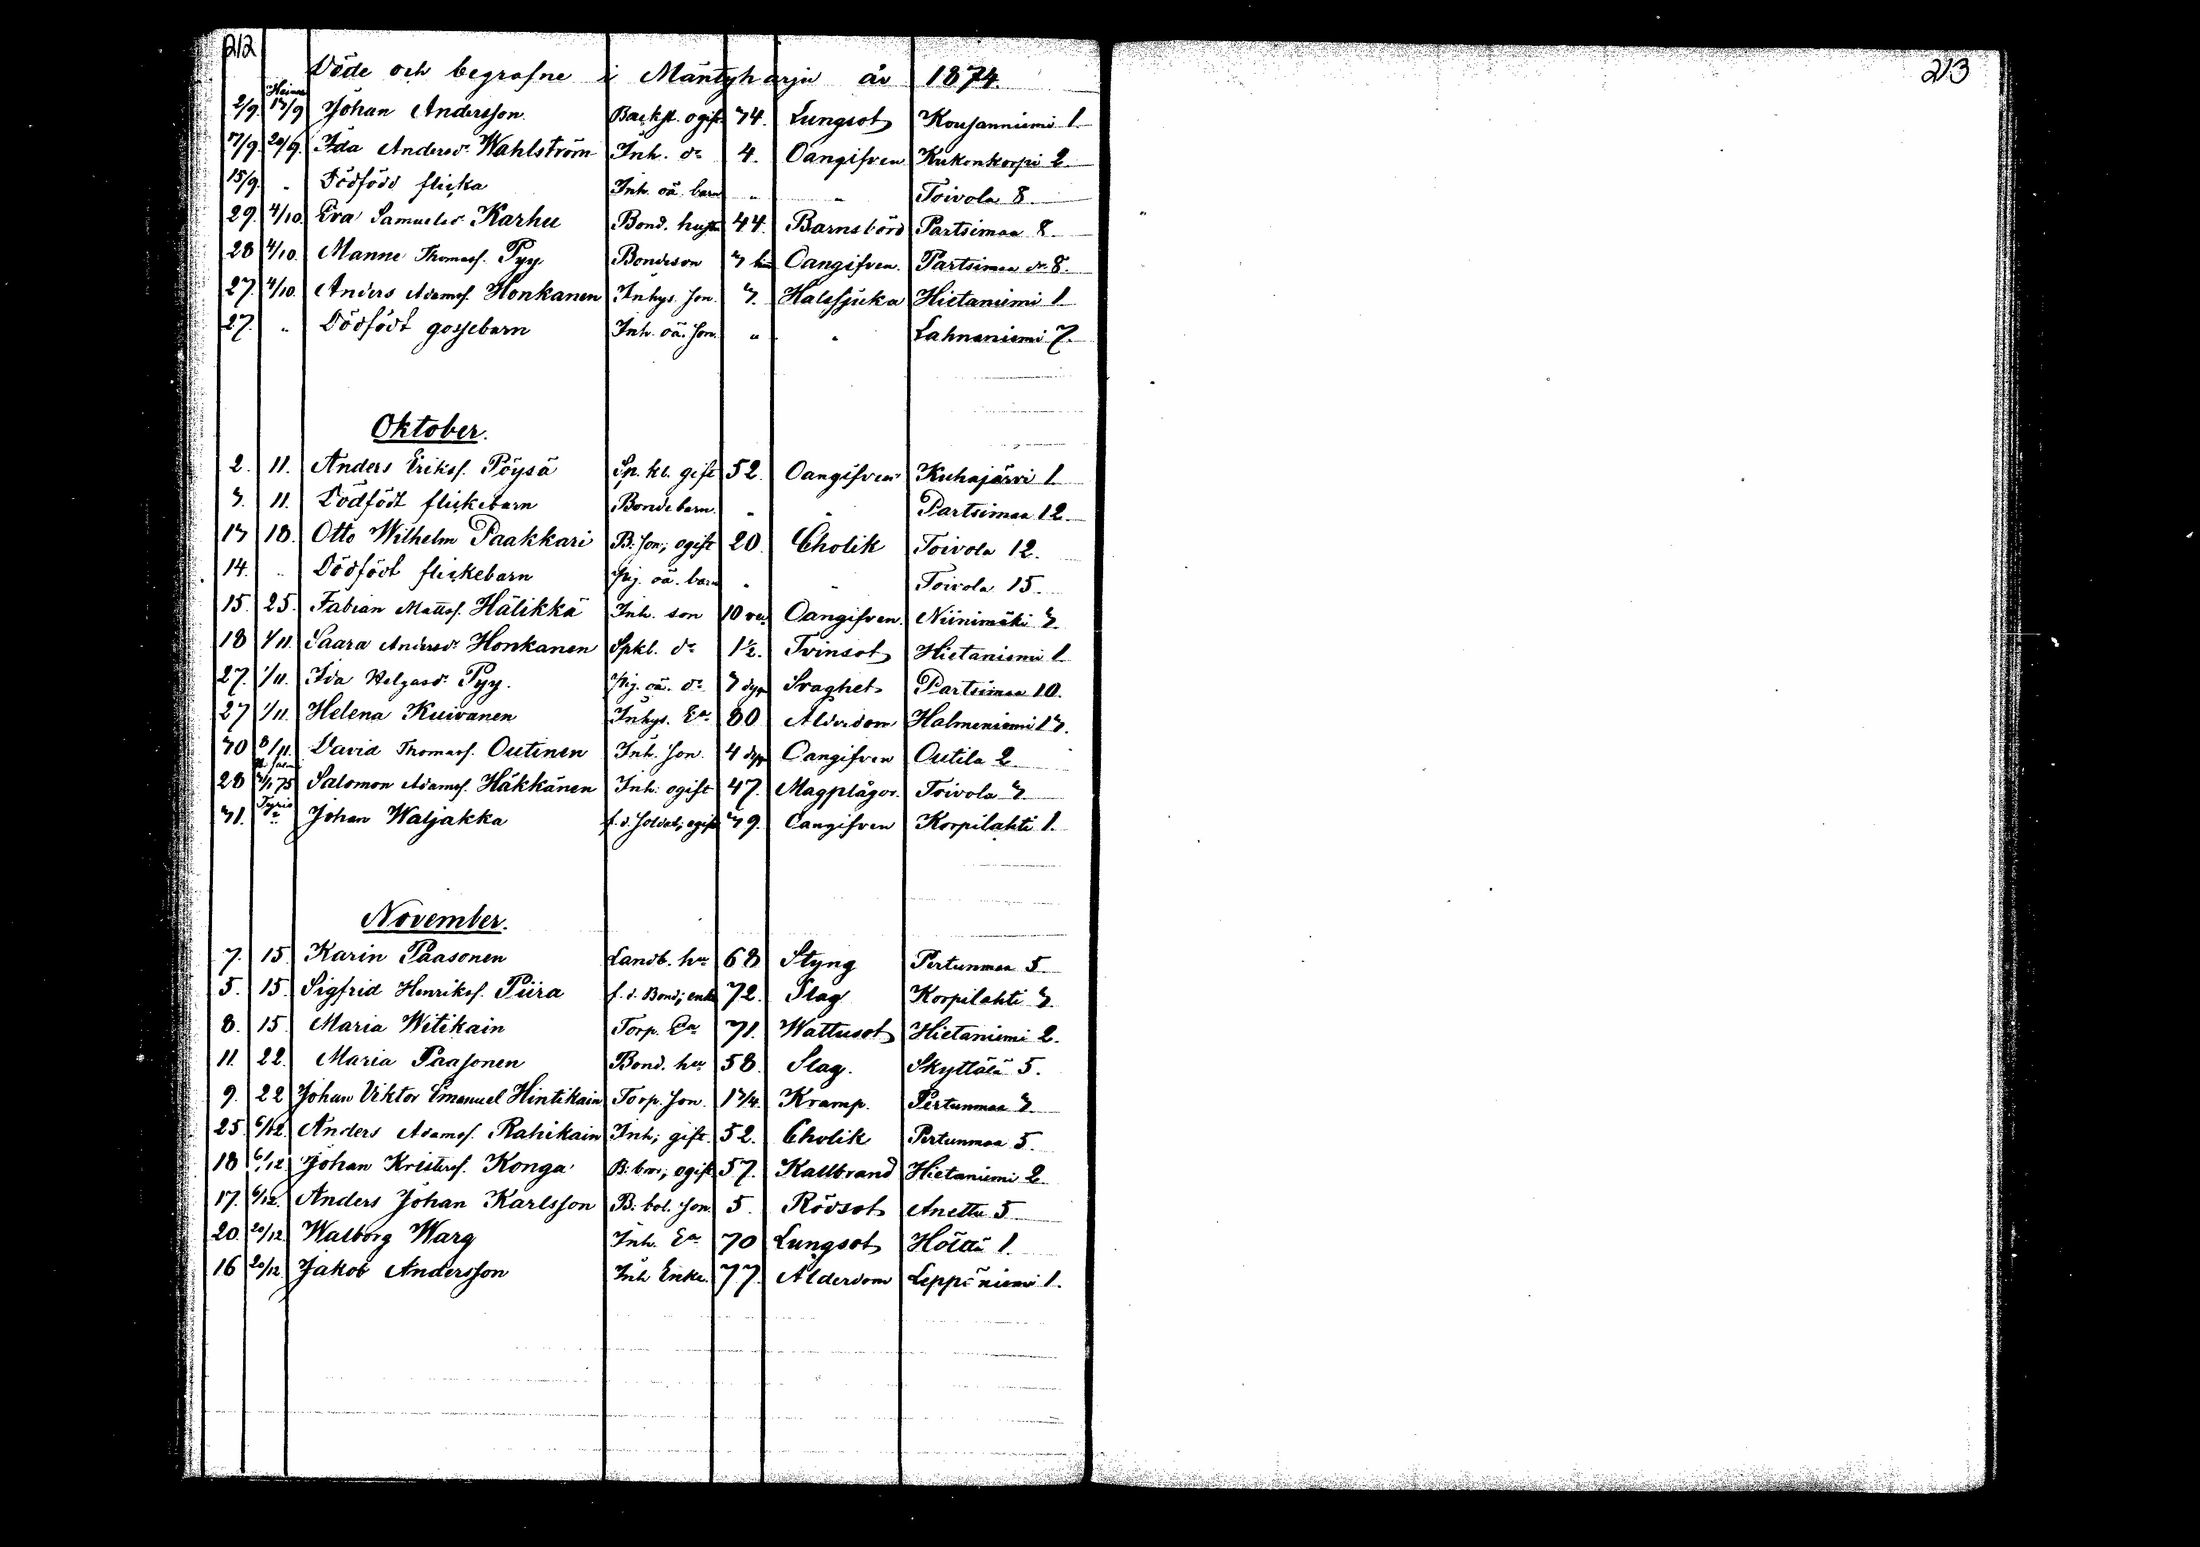 212
213
Döde och begrafne i Mäntyharju år 1874.
2/9. 13/9 Johan Andersson. Backst. ogift 74. Lungsot Kousanniemi 1.
20/9. Ida Andersdr Wahlström Inh. dr 4. Oangifven Kukonkorpi 2.
15/9. " Dödfödd flicka Inh. oä. barn " " Toivola 8.
29. 4/10. Eva Samuelsdr Karhu Bond. hustru 44. Barnsbörd Partsimaa 8.
28 4/10. Manne Thomass. Pyy Bondeson 3 Oangifven. Partsimaa 8.
27. 4/10. Anders Adamss. Honkanen Inhys. son. 3. Halssjuka Hietaniemi 1
27. " Dödfödt gossebarn Inh. oä. son. " " Lahnaniemi 7.
Oktober.
2. 11. Anders Erikss. Pöysä Sp. kl. gift 52. Oangifven Kuhajärvi 1.
3. 11. Dödfödt flickebarn Bondebarn. " " Partsimaa 12.
13 18. Otto Wilhelm Paakkari B. son; ogift 20. Cholik Toivola 12.
14. " Dödfödt flickebarn Pig. oä. barn " " Toivola 15.
15. 25. Fabian Matts. Hälikkä Inh. son 10 Oangifven. Niinimäki 3.
18 1/11. Saara Andersdr Honkanen Spkl. dr 1½. Tvinsot Hietaniemi 1
27. 1/11. Ida Helgasdr Pyy. Pig. oä. dr 3 dyg Svaghet Partsimaa 10.
27 1/11. Helena Kuivanen Inhys. Ea. 80 Ålderdom Halmeniemi 13.
30 8/11. David Thomass. Outinen Inh. son. 4 dyg Oangifven Outila 2.
28 75 Salomon Adamss. Häkkänen Inh. ogift 47. Magplågor. Toivola 3.
31. Johan Waljakka f. d. soldat; ogift 39. Oangifven Korpilahti 1.
November.
7. 15. Karin Paasonen Landb. hu 68 Styng Pertunmaa 5.
5. 15. Sigfrid Henrikss. Piira f. d. Bond; enk 72. Slag Korpilahti 3.
8. 15. Maria Witikain Torp. Ea. 71. Wattusot Hietaniemi 2.
11. 22. Maria Paasonen Bond. hu 58. Slag. Skyttälä 5.
9. 22 Johan Viktor Emanuel Hintikain Torp. son. 1 3/4. Kramp. Pertunmaa 3.
25. 6/12. Anders Adamss. Rahikain Inh; gift. 52. Cholik Pertunmaa 5.
18 6/12 Johan Kristerss. Konga B. bror; ogift 57. Kallbrand Hietaniemi 2
17. 6/12. Anders Johan Karlsson B. bol. son. 5. Rödsot Anettu 5
20. 20/12. Walborg Warg Inh. Ea 70 Lungsot Höltä 1.
16 20/12. Jakob Andersson Inh Enkl. 77. Ålderdom Leppäniemi 1.